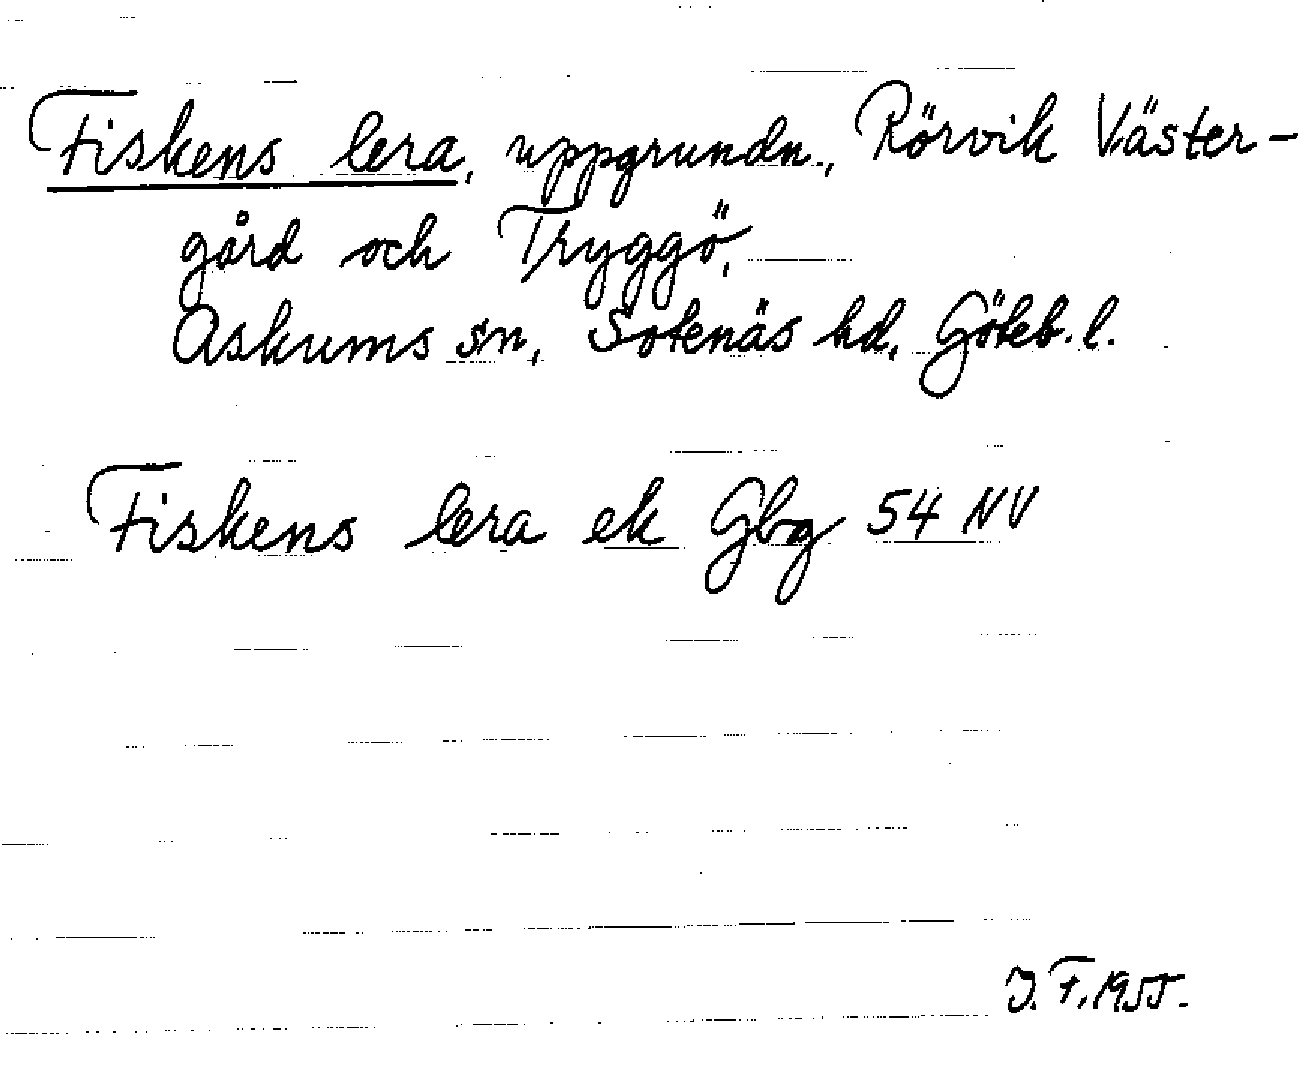 Fiskens lera, uppgrundn., Rörvik Väster-
gård och Tryggö,
Askums sn, Sotenäs hd, Göteb. l.
Fiskens lera ek Gbg 54 NV
J. F. 1955.